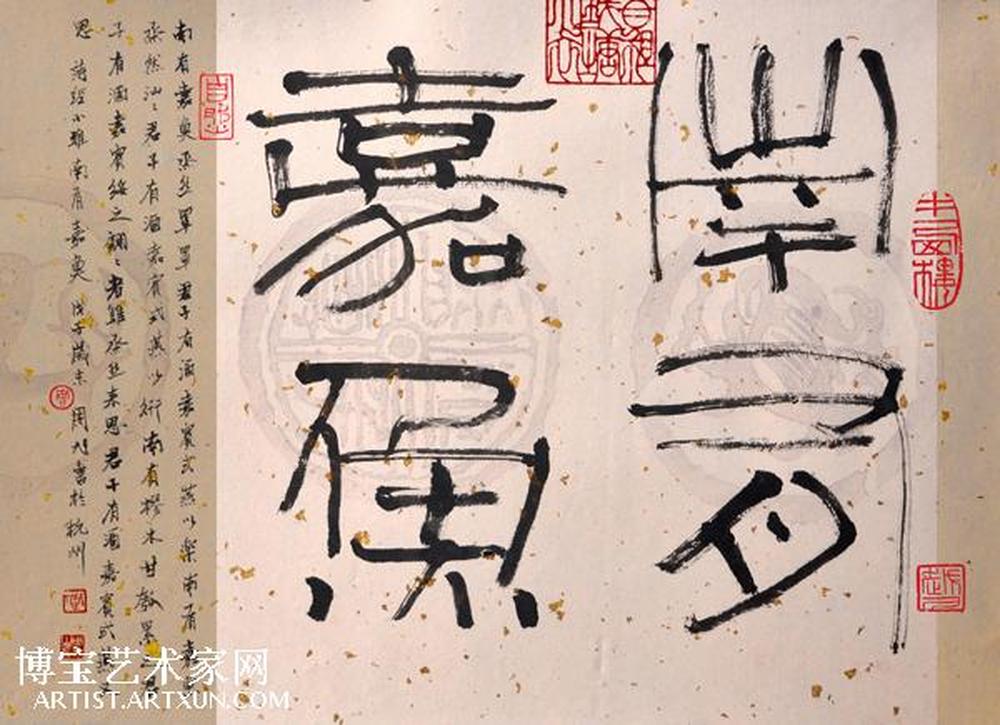 南有
嘉魚
南有嘉魚烝然罩罩君子有酒嘉賓式燕以樂南有嘉
烝然汕汕君子有酒嘉賓式燕以衎南有樛木甘瓠纍
子有酒嘉賓綏之翩翩者鵻烝然來思君子有酒嘉賓式燕又
思 詩經小雅南有嘉魚 戊子歲末 周 書於杭州
博宝艺术家网
ARTIST.ARTXUN.COM